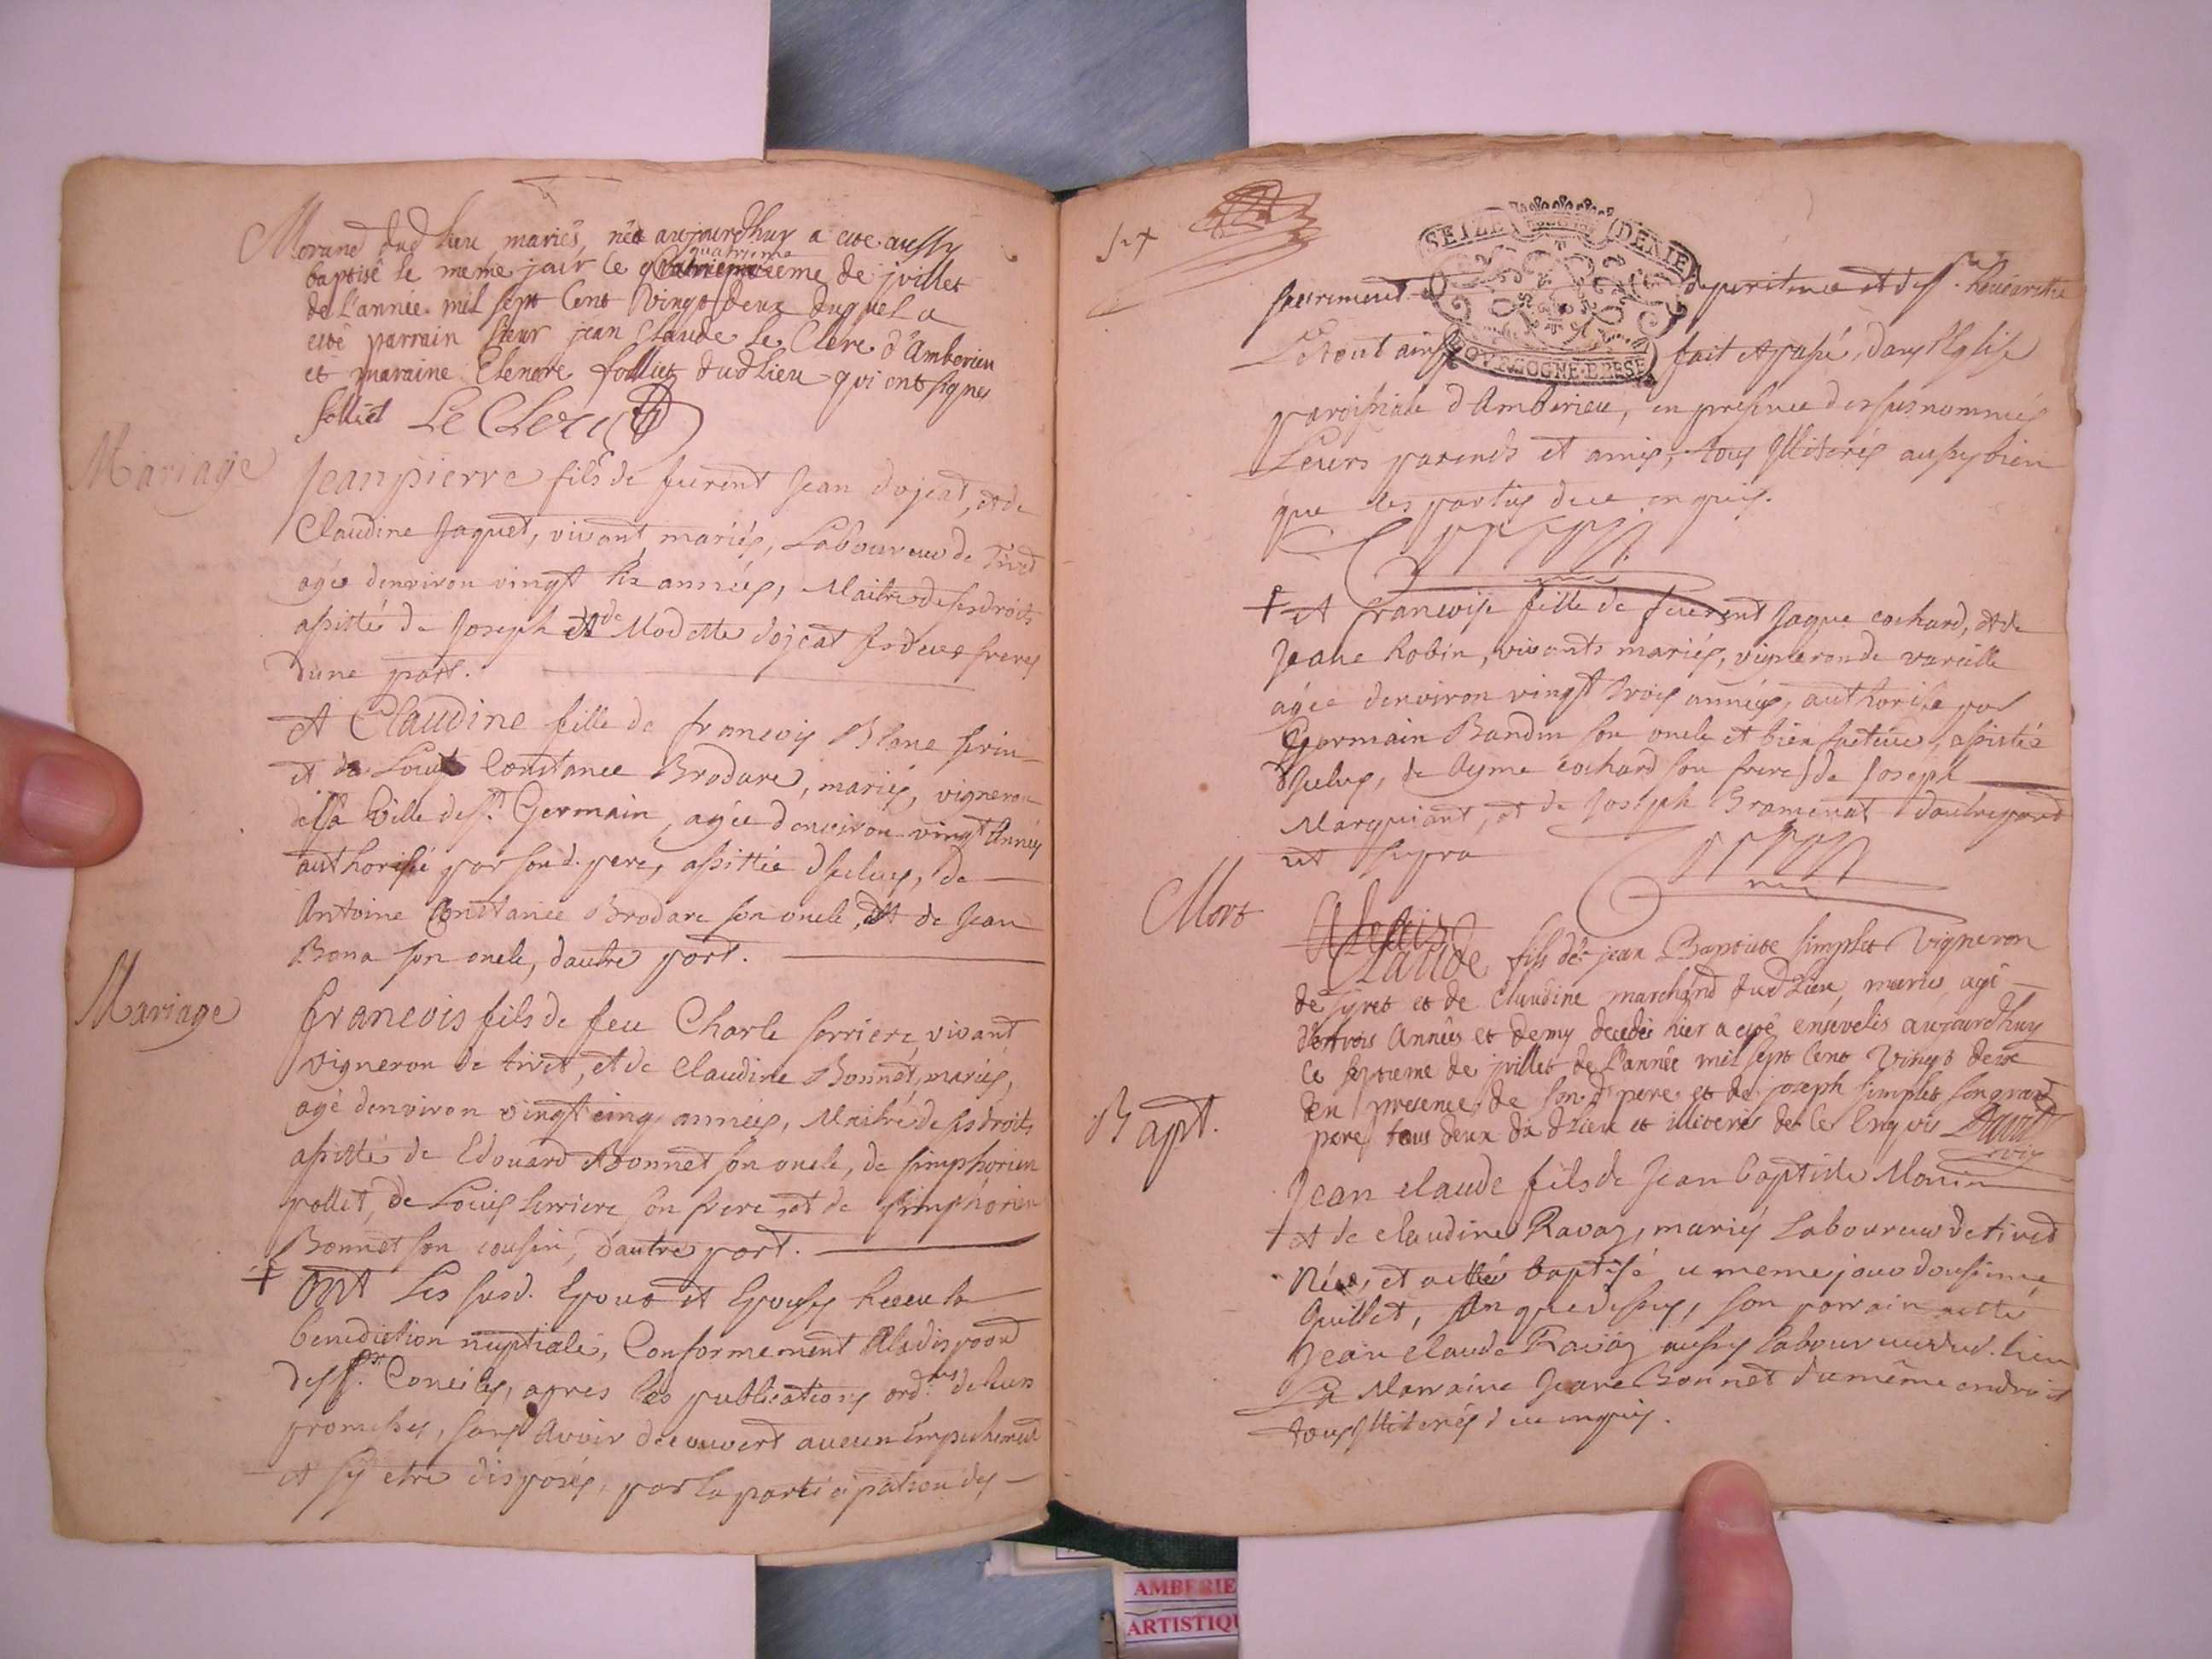 Morand dud lieu mariés, née aujourdhuy a eté aussy
baptisé le meme jour le quatrieme de juillet
de l'année mil sept cent vingt deux duquel a
eté parrain sieur jean claude le Clerc d'Amberieu
et maraine Elenore folliet dud lieu qui ont signes
folliet Le Clerc
Mariage
Jeanpierre fils de furent Jean dojeat, et de
Claudine Jaquet, vivant mariés, Laboureur de Tiret
agée denviron vingt six années, Maitre de ses droits
assisté de Joseph et de Modette dojeat ses deux freres
dune part.
et Claudine fille de francois Blanc
et de Constance Brodare, mariés, vigneron
de la ville de st. Germain, agée denviron vingt années
authorisée par son d. pere, assistée diceluy, de
Antoine Constance Brodare son oncle, et de Jean
Bona son oncle, dautre part.
Mariage
francois fils de feu Charle serriere, vivant
vigneron de tiret, et de Claudine Bonnet, mariés,
agé denviron vingt cinq années, Maitre de ses droits
assisté de Edouard Bonnet son oncle, de simphorien
pollet, de Louis serriere son frere et de simphorien
Bonnet son cousin, dautre part.
+ Ont les susd. Epoux et Epouses receu la
benediction nuptiale, Conformement
des sts. Conciles, apres les publications ordres de leurs
promesses, sans avoir decouvert aucun empechement
et sy etre disposés, par la participation des
SEIZE DENIE
BOVRGOGNE·BRESSE
sacrements de penitence et de ste. Heucaristie
Le tout ainsy fait et passé, dans l'Eglise
paroissiale d'Amberieu, en presence des susnommés
Leurs parents et amis, tous illiterés aussy bien
que les parties de ce enquis.
+ et francoise fille de furent Jaque cochard, et de
Jeane Robin, vivants mariés, vigneron de vareille
agée denviron vingt trois années, authorisée par
Germain Bandin son oncle et bien facteur, assistée
diceluy, de Ayme cochard son frere, de Joseph
Marquiant, et de Joseph Gramenat dautre part
ut supra
Mort
Claude fils de jean Baptiste simplet vigneron
de tyret et de claudine marchand dud Lieu, maries agé
denvirs Années et demy decedé hier a eté ensevelis aujourdhuy
ce septieme de juillet de l'année mil sept Cent vingt deux
en presence de son d pere et de joseph simplet son grand
pere tous deux du d Lieu et illiterés de ce Enquis
Bapt.
Jean claude fils de Jean baptiste Monin
+ et de claudine Ravaz, mariés Laboureur de tiret
Née, et a esté baptisé ce meme jour dousieme
Juillet, An que dessus, son parrain a esté
Jean claude Ravaz aussy laboureur dud. lieu
La Marraine Jeane Bonnet du même endroit
tous illiterés de ce enquis.
AMBERIE
ARTISTIQU